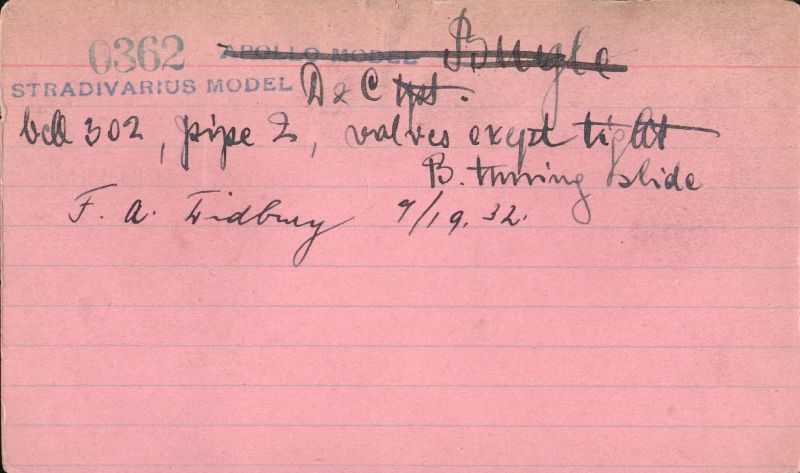 0362 APOLLO MODEL Bugle
STRADIVARIUS MODEL D & C tpt.
bell 302, pipe 2, valves exept tight
B. tunning slide
F. A. Tidbury 9/19.32.